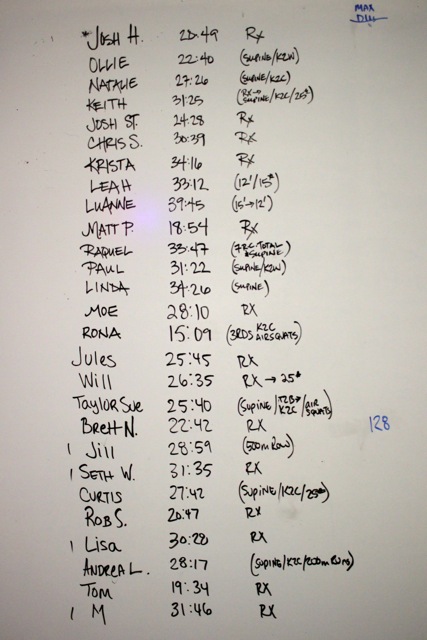 MAX
DU
*JOSH H. 20:49 RX
OLLIE 22:40 (SUPINE/K2W)
NATALIE 27:26 (SUPINE/K2C)
KEITH 31:25 (RX→ SUPINE/K2C/25#)
JOSH ST. 24:28 RX
CHRIS S. 30:39 RX
KRISTA 34:16 RX
LEAH 33:12 (12'/15#)
LUANNE 39:45 (15'→12')
MATT P. 18:54 RX
RAQUEL 33:47 (7RC. TOTAL SUPINE)
PAUL 31:22 (SUPINE/K2W)
LINDA 34:26 (SUPINE)
MOE 28:10 RX
RONA 15:09 (3RDS K2C AIRSQUATS)
Jules 25:45 RX
Will 26:35 RX → 25#
Taylor Sue 25:40 (SUPINE/T2B→K2C/AIR SQUAT)
BREtt N. 22:42 RX 128
1 Jill 28:59 (500m Row)
1 SETH W. 31:35 RX
CURTIS 27:42 (SUPINE/K2C/25#)
ROB S. 20:47 RX
1 Lisa 30:28 RX
ANDREA L. 28:17 (SUPINE/K2C/200m RUNS)
TOM 19:34 RX
1 M 31:46 RX